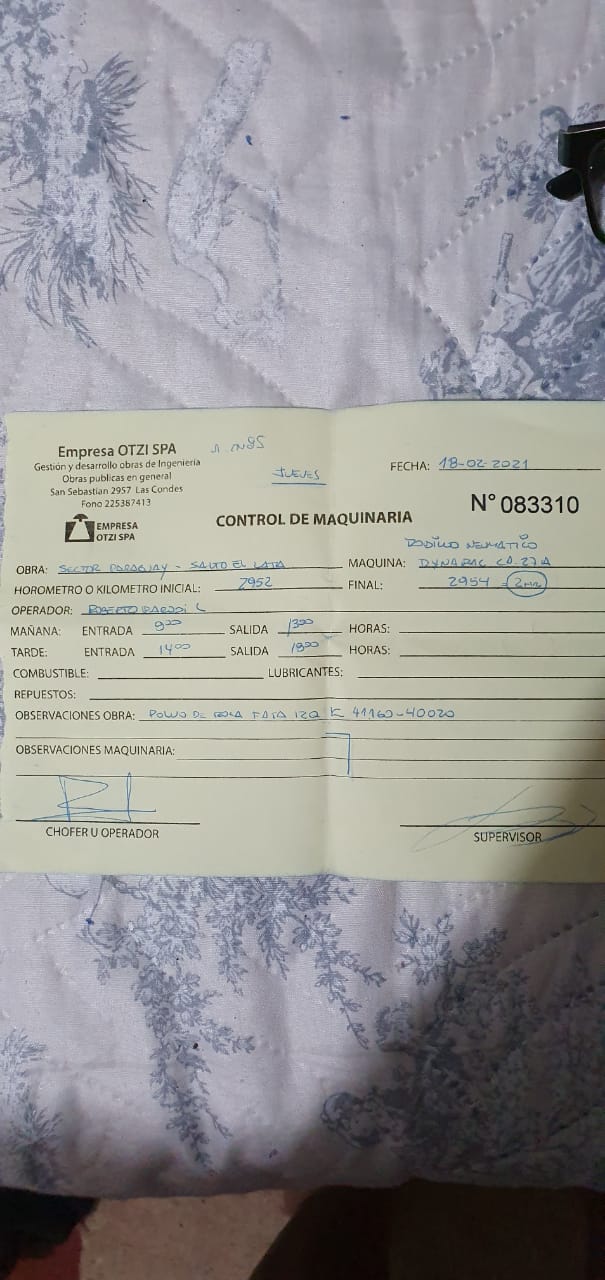 Empresa OTZI SPA
Gestión y desarrollo obras de Ingeniería
Obras publicas en general
San Sebastian 2957 Las Condes
Fono 225387413
EMPRESA
OTZI SPA
JUEVES
FECHA: 18-02-2021
N° 083310
CONTROL DE MAQUINARIA
RODILLO NEUMATICO
OBRA: SECTOR PARAGUAY - SALTO EL MAQUINA: DYNAPAC CP.27A
HOROMETRO O KILOMETRO INICIAL: 2952 FINAL: 2954
OPERADOR: ROBERTO
MAÑANA: ENTRADA 9:00 SALIDA 13:00 HORAS:
TARDE: ENTRADA 14:00 SALIDA 18:00 HORAS:
COMBUSTIBLE: LUBRICANTES:
REPUESTOS:
OBSERVACIONES OBRA: DE FAJA IZQ K 41160-40020
OBSERVACIONES MAQUINARIA:
CHOFER U OPERADOR SUPERVISOR